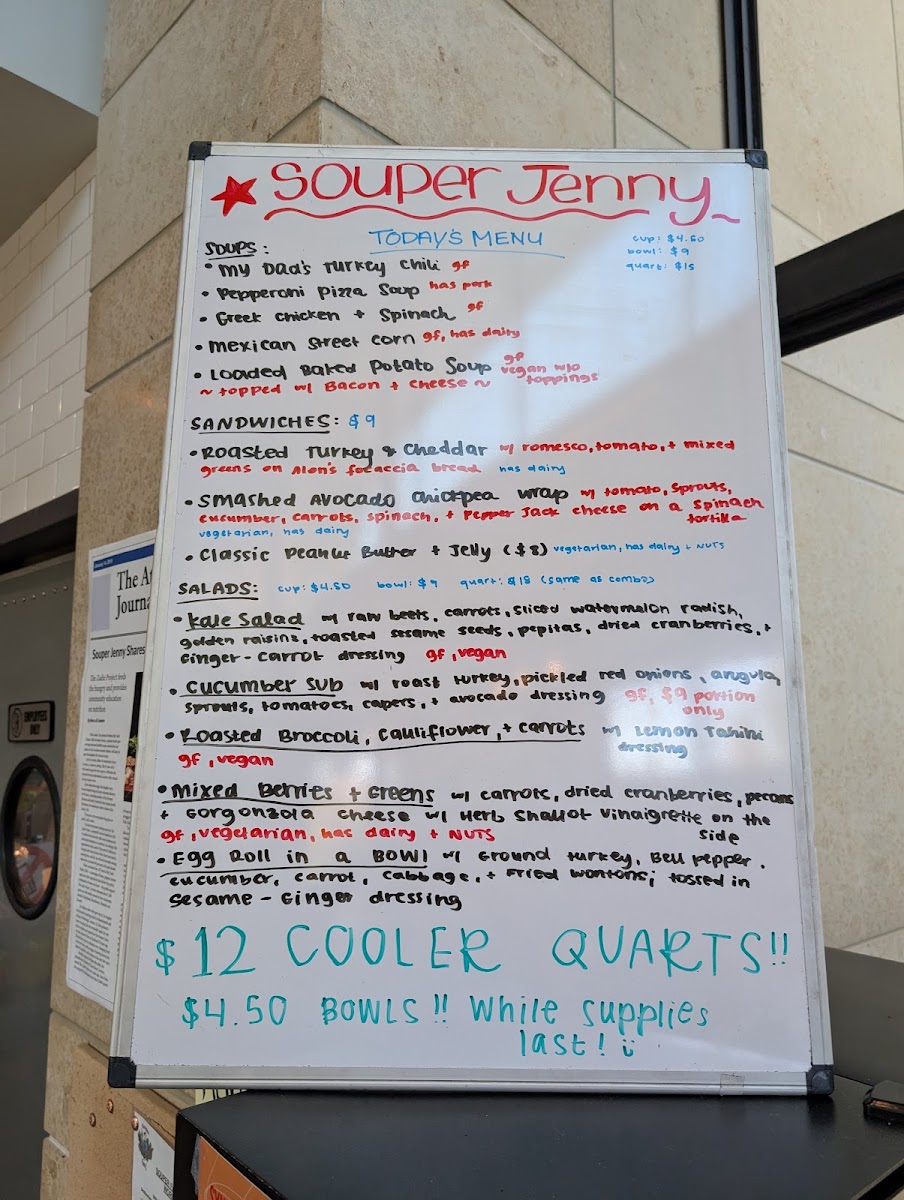 SOUPER JENNY
TODAY'S MENU
cup: $4.50
bowl: $9
quart: $15
SOUPS:
• My Dad's Turkey Chili gf
• Pepperoni Pizza Soup has pork
• Greek Chicken + Spinach gf
• Mexican Street Corn gf, has dairy
• Loaded Baked Potato Soup gf vegan w/o toppings
~ topped w/ Bacon + cheese ~
SANDWICHES: $9
• Roasted Turkey & Cheddar w/ romesco, tomato, + mixed
greens on Alon's focaccia bread has dairy
• Smashed Avocado Chickpea Wrap w/ tomato, sprouts,
cucumber, carrots, spinach, + Pepper Jack cheese on a Spinach
tortilla
vegetarian, has dairy
• Classic Peanut Butter + Jelly ($8) vegetarian, has dairy + NUTS
SALADS: cup: $4.50 bowl: $9 quart: $18 (same as combo)
• Kale Salad w/ raw beets, carrots, sliced watermelon radish,
golden raisins, toasted sesame seeds, pepitas, dried cranberries, +
Ginger-Carrot dressing gf, vegan
• Cucumber Sub w/ roast turkey, pickled red onions, arugula,
sprouts, tomatoes, capers, + avocado dressing gf, $9 portion
only
• Roasted Broccoli, Cauliflower, + Carrots w/ Lemon Tahini
dressing
gf, vegan
• Mixed Berries + Greens w/ carrots, dried cranberries, pecans
+ Gorgonzola Cheese w/ Herb Shallot Vinaigrette on the
side
gf, vegetarian, has dairy + NUTS
• Egg Roll in a Bowl w/ Ground turkey, Bell Pepper,
cucumber, carrot, cabbage, + Fried wontons; tossed in
Sesame-Ginger dressing
$12 COOLER QUARTS!!
$4.50 BOWLS!! While supplies
last!
The At
Journa
Souper Jenny Shares
EMPLOYEES
ONLY